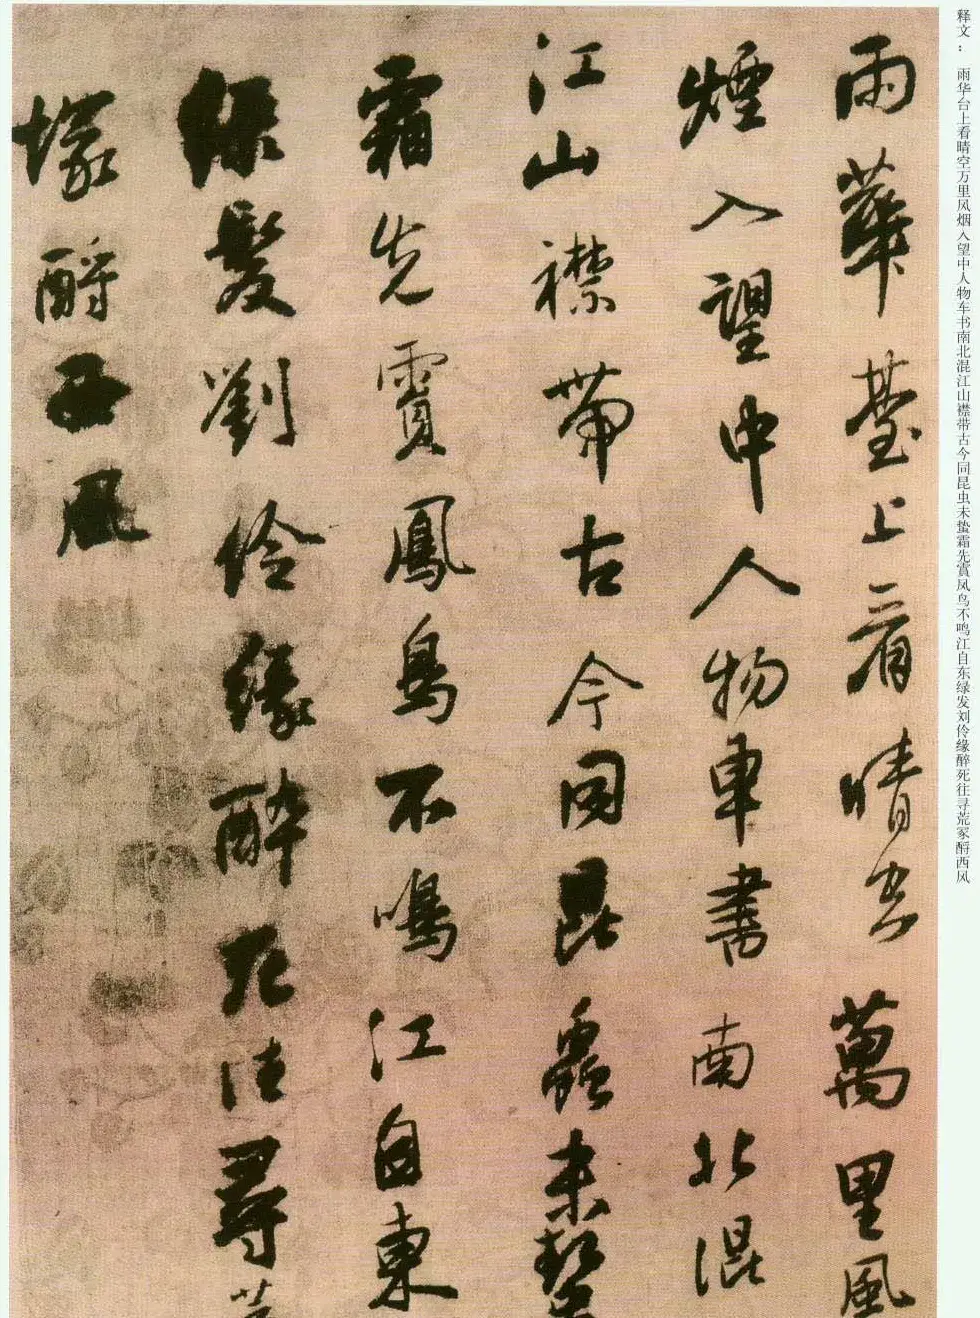 释文： 雨华台上看晴空万里风烟入望中人物车书南北混江山襟带古今同昆虫未蛰霜先賞凤鸟不鸣江自东绿发刘伶缘醉死往寻荒冢酹西风
雨華臺上看晴空萬里風
煙入望中人物車書南北混
江山襟帶古今同昆蟲未蟄
霜先霣鳳鳥不鳴江自東
緑髮劉伶緣醉死往尋荒
塚酹西風